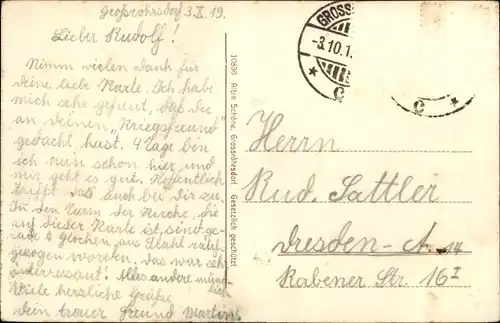 Großröhrsdorf 3.X.19.
Lieber Rudolf!
Nimm vielen Dank für
deine liebe Karte. Ich habe
mich sehr gefreut, daß du
an deinen „Kriegsfreund“
gedacht hast. 4 Tage bin
ich nun schon hier, und
mir geht es gut. Hoffentlich
trifft das auch bei Dir zu.
In den Turm der Kirche, die
auf dieser Karte ist, sind ge-
rade 4 Glocken, aus Stahl rauf-
gezogen worden. Das war sehr
interessant! Alles andere münd-
lich
Viele herzliche Grüße
Dein treuer Freund Martin
10836 Albin Schöne, Grossröhrsdorf. Gesetzlich geschützt.
GROSS
-3.10.1
* C
C *
Herrn
Rud. Sattler
Dresden-A. 14
Rabener Str. 16 I